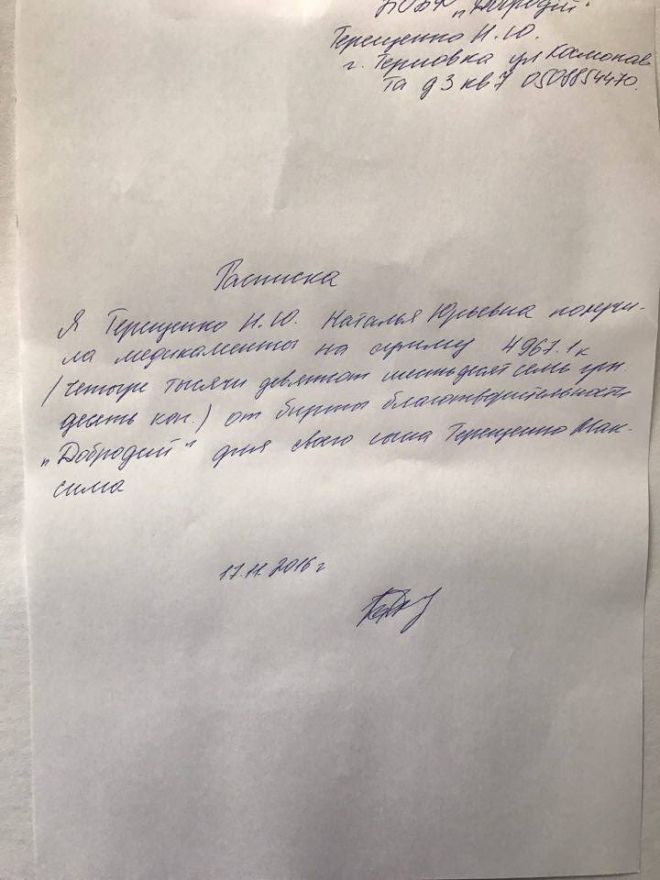 "Добродій".
Терещенко Н.Ю.
г. Терновка ул Космонав
та д 3 кв 7 0508854470.
Расписка
Я Терещенко Н.Ю. Наталья Юрьевна получи-
ла медикаменты на сумму 4967.1к
(Четыре тысячи девятсот шестьдесят семь грн
десять коп.) от биржы благотворительности
"Добродий" для своего сына Терещенко Мак-
сима
17.11.2016 г